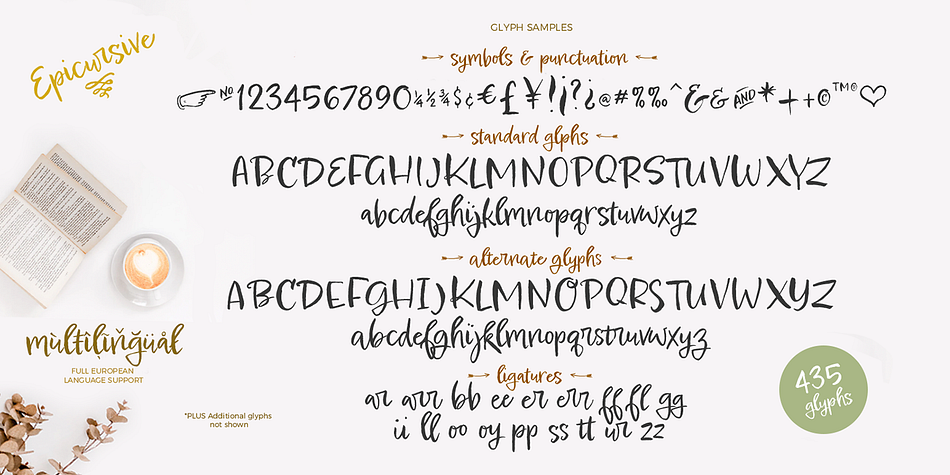 GLYPH SAMPLES
Epicursive
symbols & punctuation
☞ № 1234567890 ¼ ½ ¾ $ ¢ € £ ¥ ! ¡ ? ¿ @ # % ‰ ^ & & AND * + + © ™ ® ♡
standard glphs
ABCDEFGHIJKLMNOPQRSTUVWXYZ
abcdefghijklmnopqrstuvwxyz
alternate glyphs
ABCDEFGHIJKLMNOPQRSTUVWXYZ
abcdefghijklmnopqrstruvwxyz
ligatures
ar arr bb ee er err ff fl gg
ii ll oo oy pp ss tt ur zz
mùltîlìņğüåł
FULL EUROPEAN
LANGUAGE SUPPORT
*PLUS Additional glyphs
not shown
435
glyphs